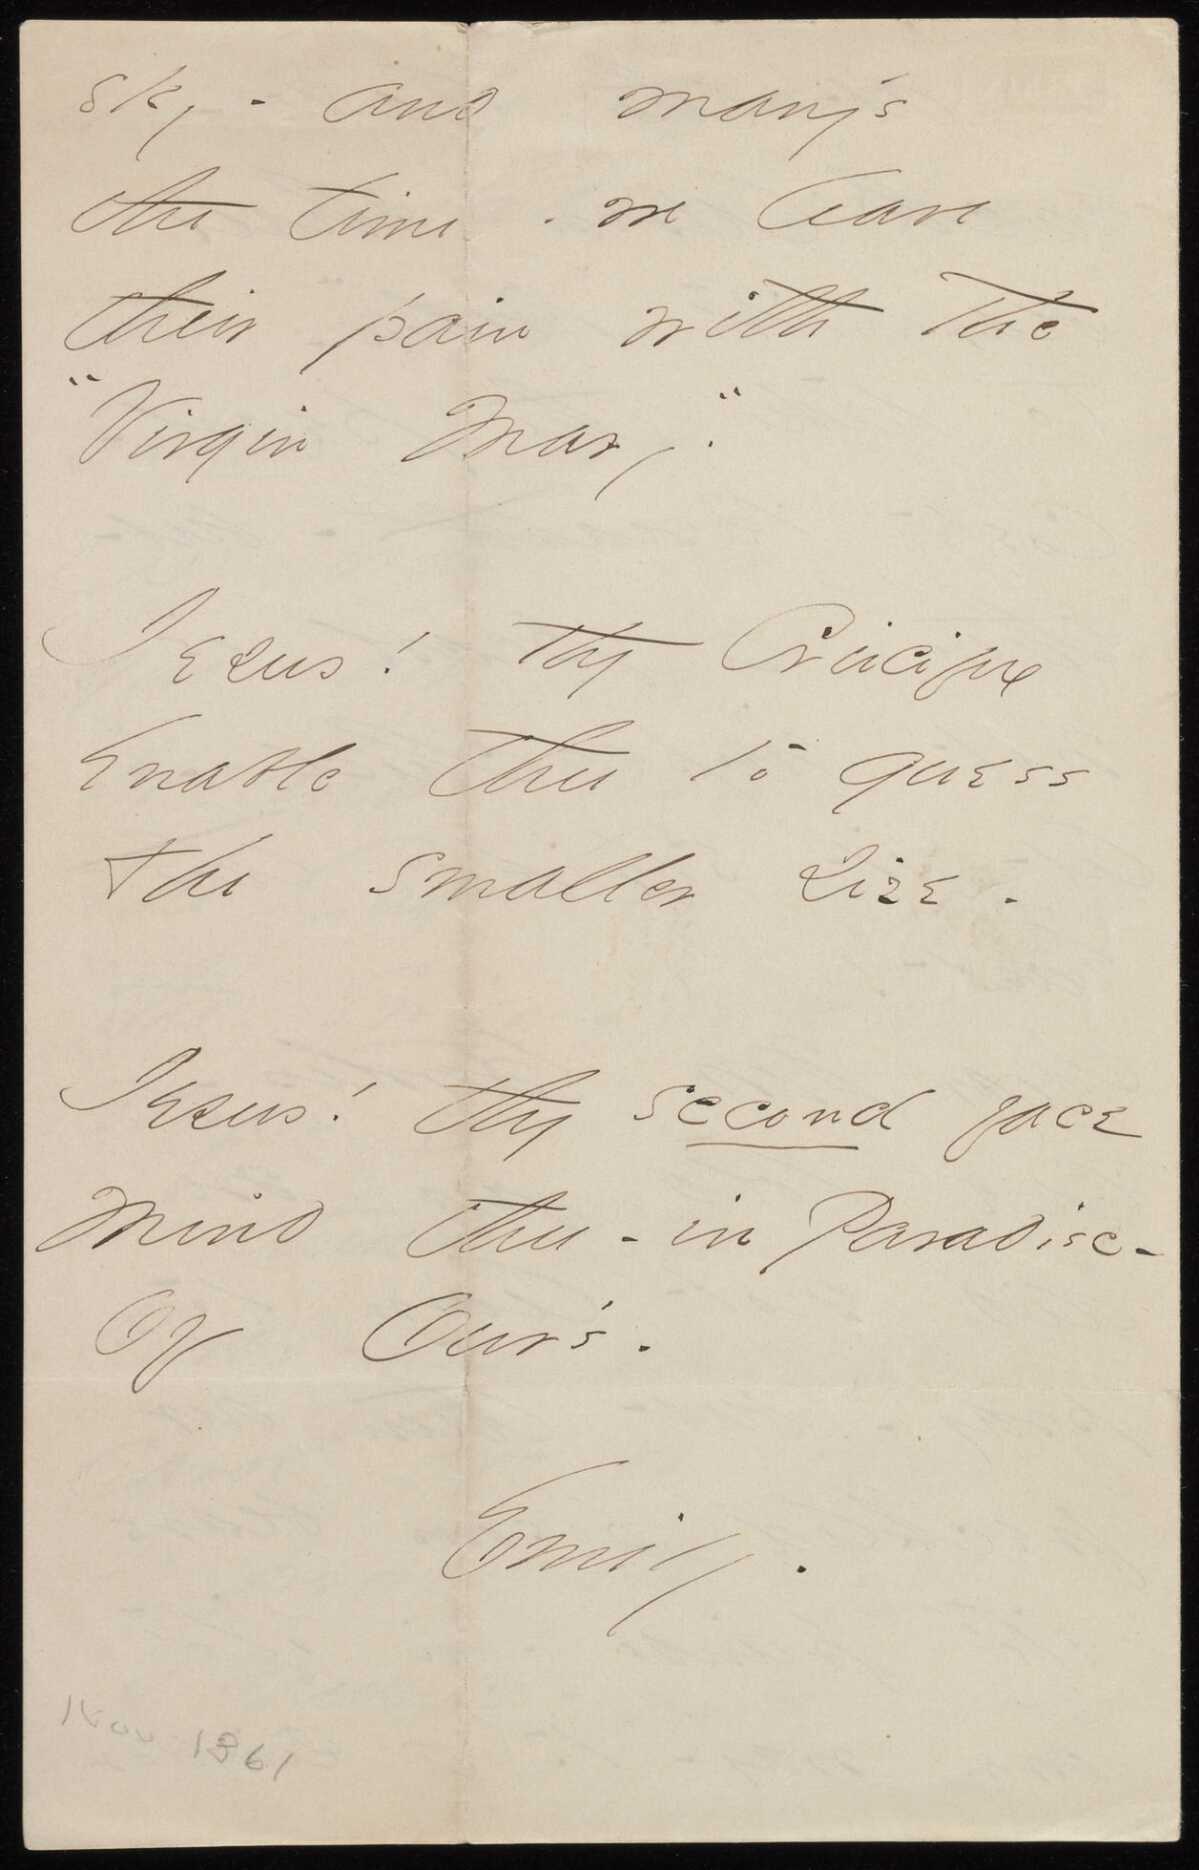 sky - and many's
the time - we leave
their pain with the
"Virgin Mary".
Jesus! thy Crucifix
Enable thee to guess
the smaller size -
Jesus! thy second face
Mind thee - in Paradise -
Of Our's.
Emily.
Nov 1861